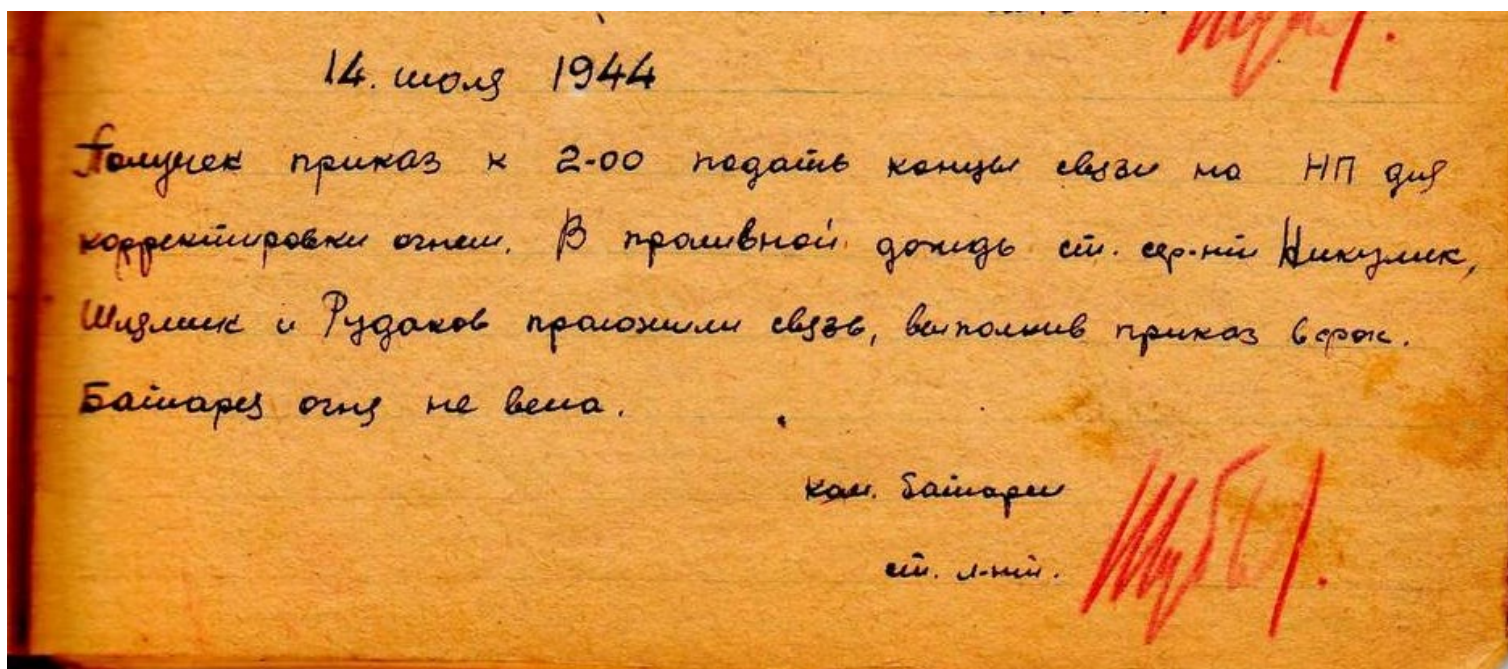 14. июля 1944
Получен приказ к 2-00 подать концы связи на НП для
корректировки огнем. В проливной дождь ст. сер-нт Никулин,
и Рудаков проложили связь, выполнив приказ в срок.
Батарея огня не вела.
ком. батареи
ст. л-нт.